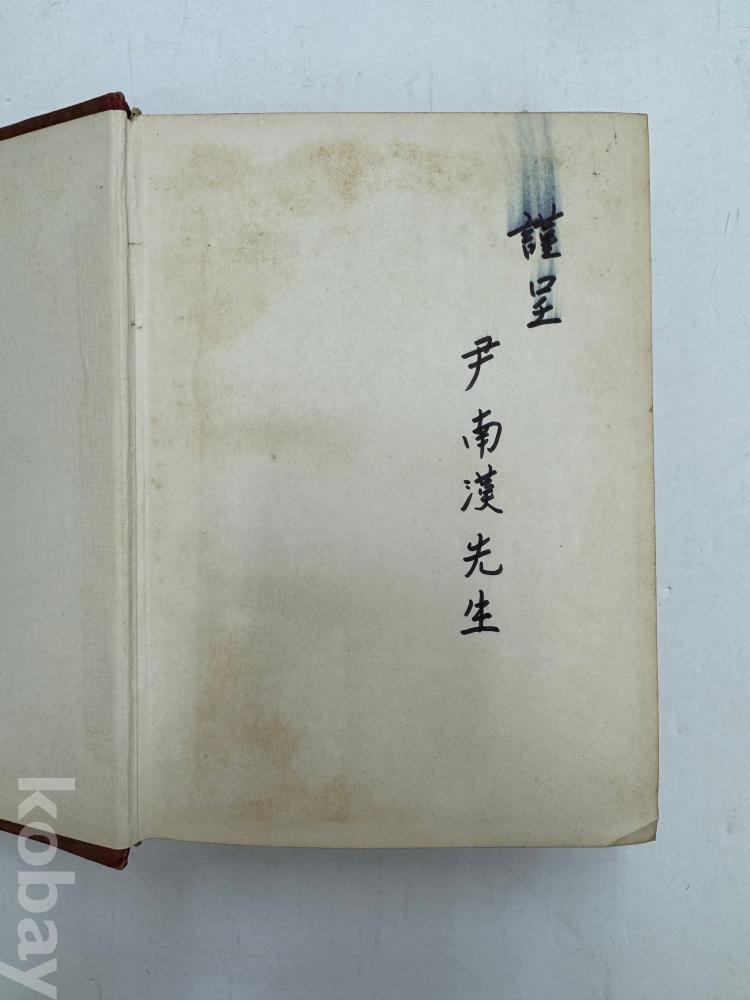 謹呈
尹南漢先生
kobay